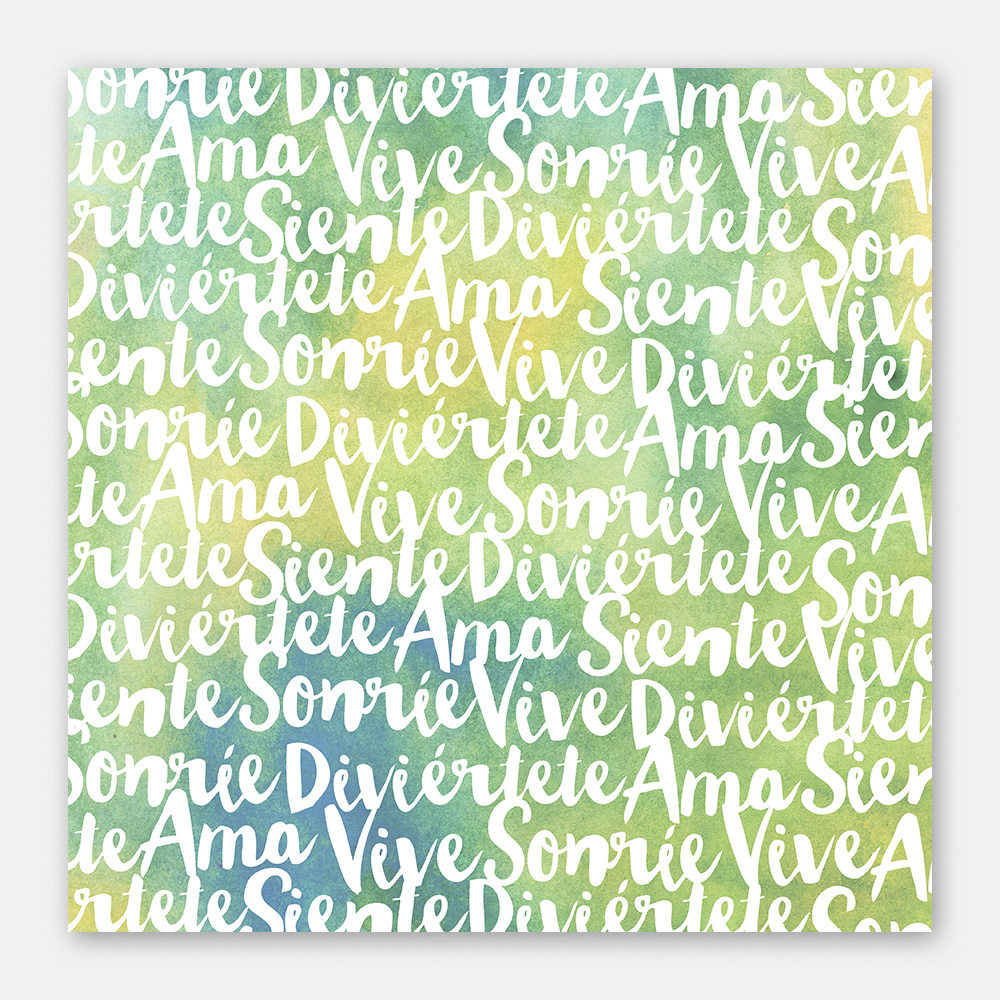 Sonríe Diviértete Ama Sien
te Ama Vive Sonríe Vive A
értete Siente Diviértete Son
Diviértete Ama Siente Vive
iente Sonríe Vive Diviértet
Sonríe Diviértete Ama Sien
te Ama Vive Sonríe Vive A
értete Siente Diviértete Son
Diviértete Ama Siente Vive
iente Sonríe Vive Diviértet
Sonríe Diviértete Ama Sien
te Ama Vive Sonríe Vive A
értete Siente Diviértete Son